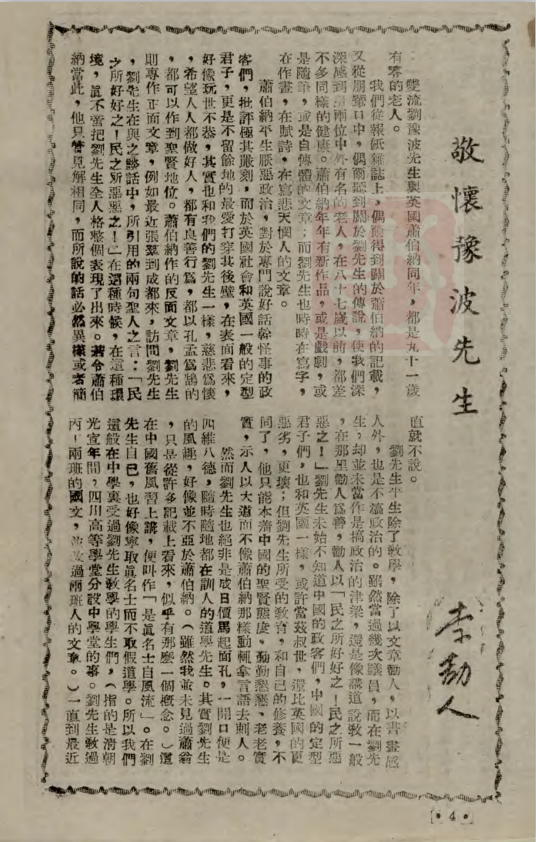 敬懷豫波先生
李劼人
雙流劉豫波先生與英國蕭伯納同年，都是九十一歲
有零的老人。
我們從報紙雜誌上，偶然得到關於蕭伯納的記載，
又從朋輩口中，偶爾聽到關於劉先生的傳說，使我們深
深感到這兩位中外有名的老人，在八十七歲以前，都差
不多同樣的健康。蕭伯納年年有新作品，或是戲劇，或
是隨筆，或是自傳體的文章；而劉先生也時時在寫字，
在作畫，在賦詩，在寫悲天憫人的文章。
蕭伯納平生厭惡政治，對於專門說好話幹怪事的政
客們，批評極其刻，而於英國社會和英國一般的定型
君子，更是不留餘地的最愛打穿其後壁，在表面看來，
好像玩世不恭，其實也和我們的劉先生一樣，慈悲爲懷
，希望人人都做好人，都有良善行爲，都以孔孟爲鵠的
，都可以作到聖賢地位。蕭伯納作的反面文章，劉先生
則專作正面文章，例如最近張羣到成都來，訪問劉先生
，劉先生在與之談話中，所引用的兩句聖人之言：「民
之所好好之！民之所惡惡之！」在這種時候，在這種環
境，眞不啻把劉先生全人格整個表現了出來。若令蕭伯
納當此，他只管見解相同，而所說的話必然異樣或者簡
直就不說。
劉先生平生除了教學，除了以文章勸人，以書畫感
人外，也是不搞政治的。雖然當過幾次議員，而在劉先
生，却並未當作是搞政治的津梁，還是像講道說教一般
，在那里勸人爲善，勸人以「民之所好好之！民之所惡
惡之！」劉先生未始不知道中國的政客們，中國的定型
君子們，也和英國一樣，或許當茲叔世，還比英國的更
惡劣，更壞；但劉先生所受的教育，和自己的修養，不
同了，他只能本着中國的聖賢態度，勤勤懇懇，老老實
實，示人以大道而不像蕭伯納那樣動輒拿言語去刺人。
然而劉先生也絕非是成日價馬起面孔，一開口便是
四維八德，隨時隨地都在訓人的道學先生。其實劉先生
的風趣，好像並不亞於蕭伯納。（雖然我並未見過蕭翁
，只是從許多記載上看來，似乎有那麼一個概念。）這
在中國舊風習上講，便叫作「是眞名士自風流」。在劉
先生自己，也好像寧取眞名士而不取假道學。所以我們
這般在中學裏受過劉先生教學的學生們，（指的是清朝
光宣年間，四川高等學堂分設中學堂的事。劉先生教過
丙丁兩班的國文，改過兩班人的文章。）一直到最近
[•4•]